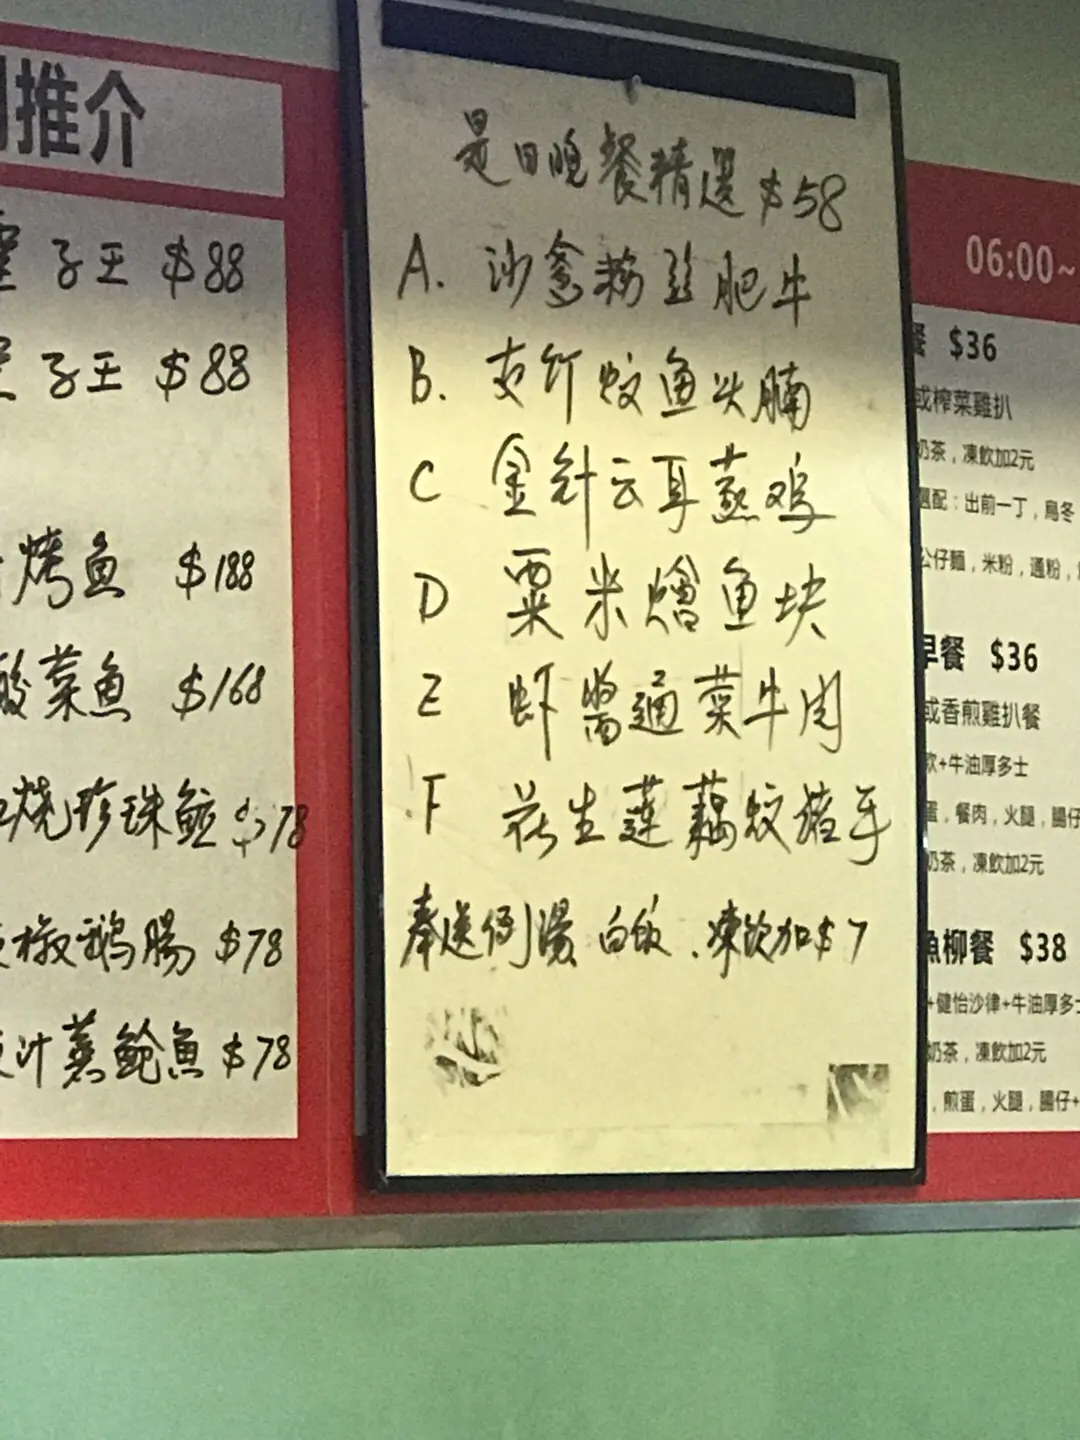 推介
子王 $88
子王 $88
烤鱼 $188
酸菜魚 $168
燒珍珠 $78
椒鹅腸 $78
汁蒸鮑魚 $78
是日晚餐精選 $58
A. 沙爹粉丝肥牛
B. 支竹炆鱼头腩
C 金針云耳蒸鸡
D 粟米燴鱼块
E 虾醬通菜牛肉
F 花生蓮藕炆猪手
奉送例湯 白飯.凍飲加$7
06:00~
餐 $36
或榨菜雞扒
奶茶，凍飲加2元
選配：出前一丁，烏冬
公仔麵，米粉，通粉，
早餐 $36
或香煎雞扒餐
飲+牛油厚多士
蛋，餐肉，火腿，腸仔
奶茶，凍飲加2元
魚柳餐 $38
+健怡沙律+牛油厚多士
奶茶，凍飲加2元
，煎蛋，火腿，腸仔+